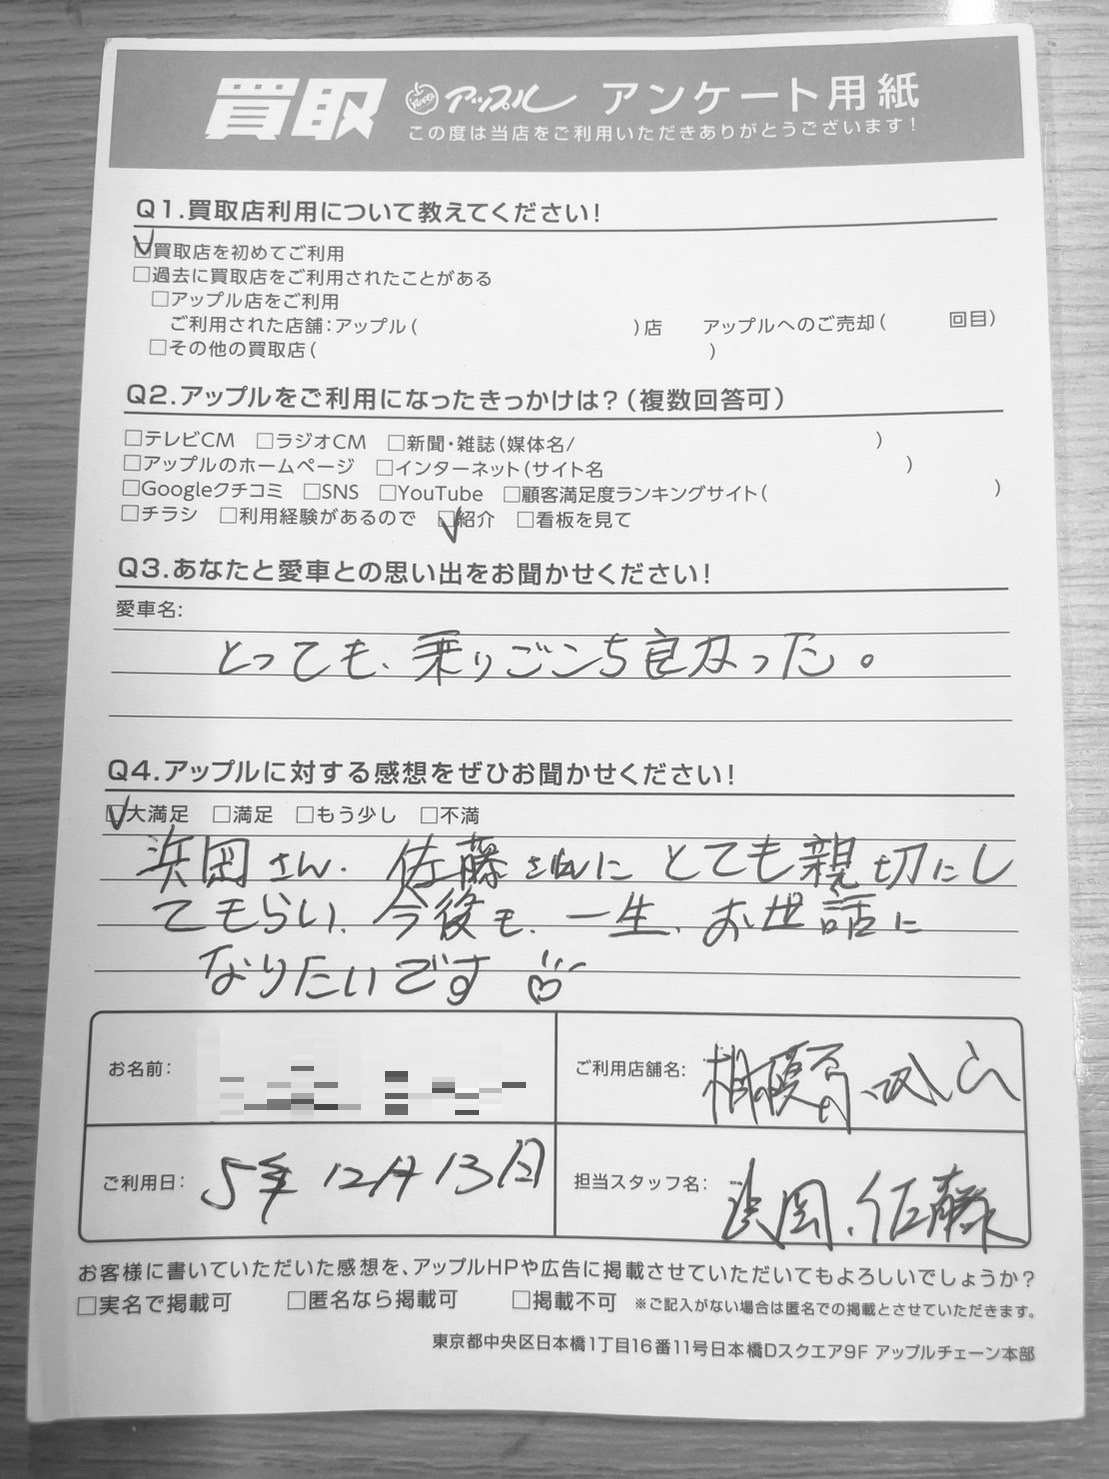 買取 アップル アンケート用紙
この度は当店をご利用いただきありがとうございます!
Q1.買取店利用について教えてください!
☑買取店を初めてご利用
□過去に買取店をご利用されたことがある
□アップル店をご利用
ご利用された店舗:アップル( )店 アップルへのご売却( 回目)
□その他の買取店( )
Q2.アップルをご利用になったきっかけは?(複数回答可)
□テレビCM □ラジオCM □新聞・雑誌(媒体名/ )
□アップルのホームページ □インターネット(サイト名 )
□Googleクチコミ □SNS □YouTube □顧客満足度ランキングサイト( )
□チラシ □利用経験があるので ☑紹介 □看板を見て
Q3.あなたと愛車との思い出をお聞かせください!
愛車名:
とっても、乗りごこち良かった。
Q4.アップルに対する感想をぜひお聞かせください!
☑大満足 □満足 □もう少し □不満
浜岡さん、佐藤さんにとても親切にし
てもらい、今後も、一生、お世話に
なりたいです
お名前:
ご利用店舗名: 相模原
ご利用日: 5年12月13日
担当スタッフ名: 浜岡、佐藤
お客様に書いていただいた感想を、アップルHPや広告に掲載させていただいてもよろしいでしょうか?
□実名で掲載可 □匿名なら掲載可 □掲載不可 ※ご記入がない場合は匿名での掲載とさせていただきます。
東京都中央区日本橋1丁目16番11号日本橋Dスクエア9F アップルチェーン本部